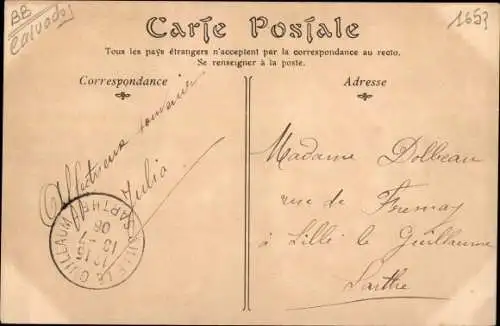 BB
Calvados
1653
Carte Postale
Tous les pays étrangers n'acceptent par la correspondance au recto.
Se renseigner à la poste.
Correspondance
Adresse
Affectueux souvenir
Julia
Madame Dolbeau
rue de Fresnay
à Sillé le Guillaume
Sarthe
SILLÉ LE GUILLAUME
SARTHE
12 15
13 - 7
06